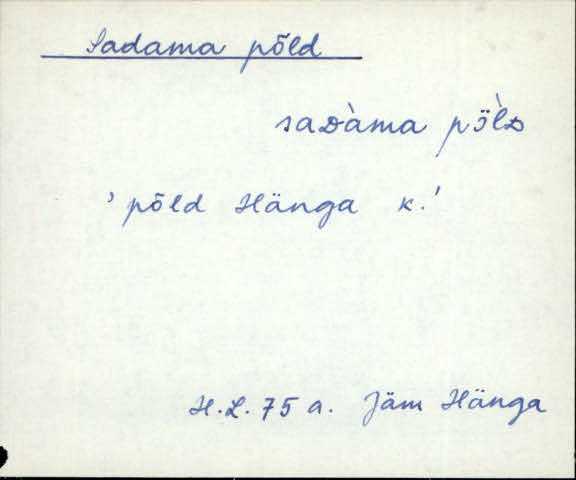 Sadama põld
saᴅàma pö̀lᴅ
'põld Hänga k.'
H.L. 75 a. Jäm Hänga